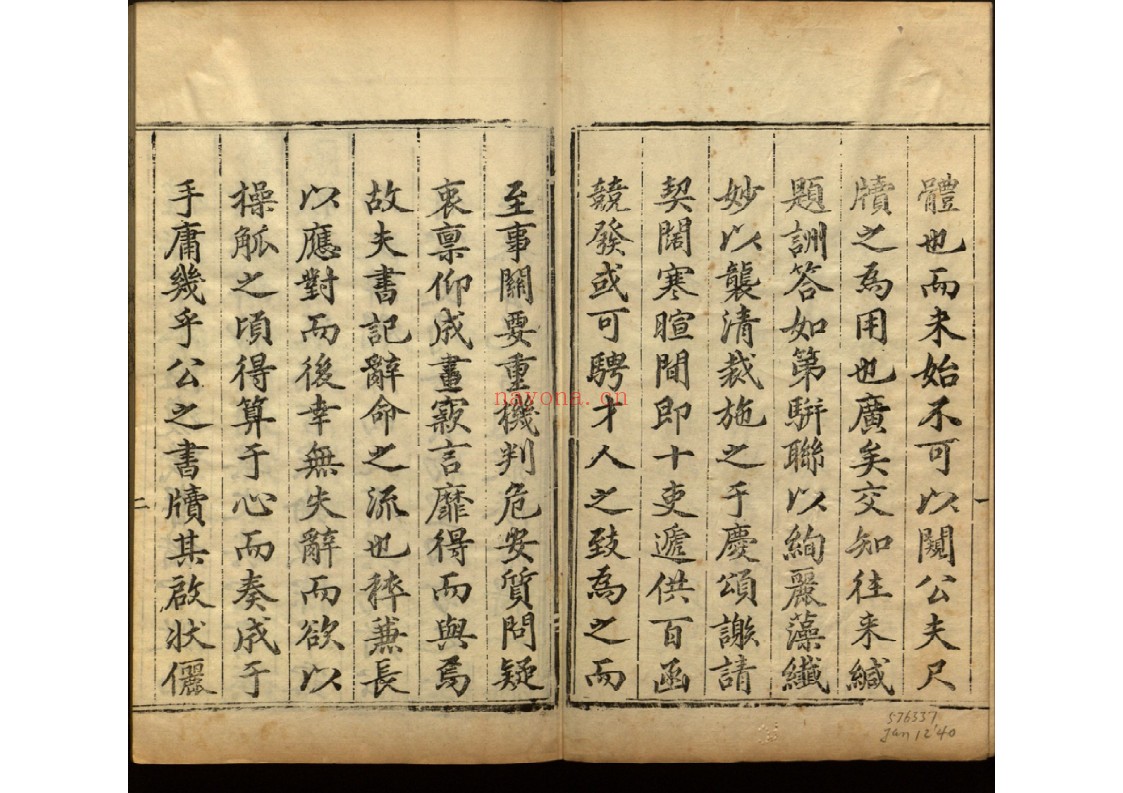 體也而未始不可以闚公夫尺
牘之為用也廣矣交知往来緘
題詶答如第駢聯以絢麗藻纖
妙以襲清裁施之于慶頌謝請
契闊寒暄間即十吏遞供百函
競發或可騁才人之致為之而
至事關要重機判危安質問疑
衷禀仰成畫窾言靡得而與焉
故夫書記辭命之流也稡蒹長
以應對而後幸無失辭而欲以
操觚之頃得算于心而奏成于
手庸幾乎公之書牘其啟狀儷
一
二
nayona.cn
576337
Jan 12 '40